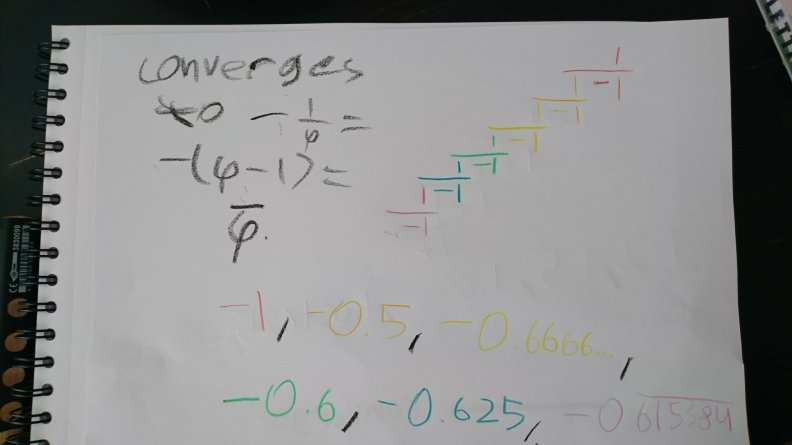 converges
to − 1/φ =
−(φ−1) =
φ̅.
1
1 −1
1 −1
1 −1
1 −1
1 −1
−1
−1, −0.5, −0.6666...,
−0.6, −0.625, −0.6̅1̅5̅3̅8̅4̅
3830099